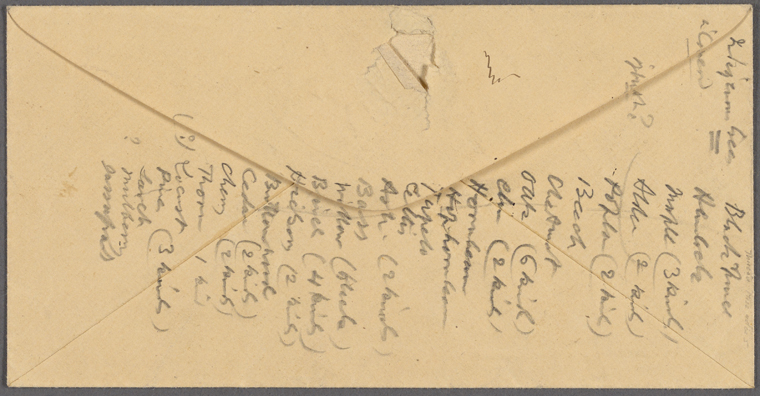 Black Spruce
Hemlock
Maple (3 kinds)
Alder (2 kinds)
Poplar (2 kinds)
Beech
Chestnut
Oak (6 kinds)
Elm (2 kinds)
Hornbeam
Hophornbeam
Tupelo
Celtis
Ash (2 kinds)
Bass
Willow (6 kinds)
Birch (4 kinds)
Hickory (2 kinds)
Buttonwood
Cedar (2 kinds)
Cherry (2 kinds)
Thorn 1 ki
(?) Locust
Pine (3 kinds)
Larch
? Mulberry
Sassafras